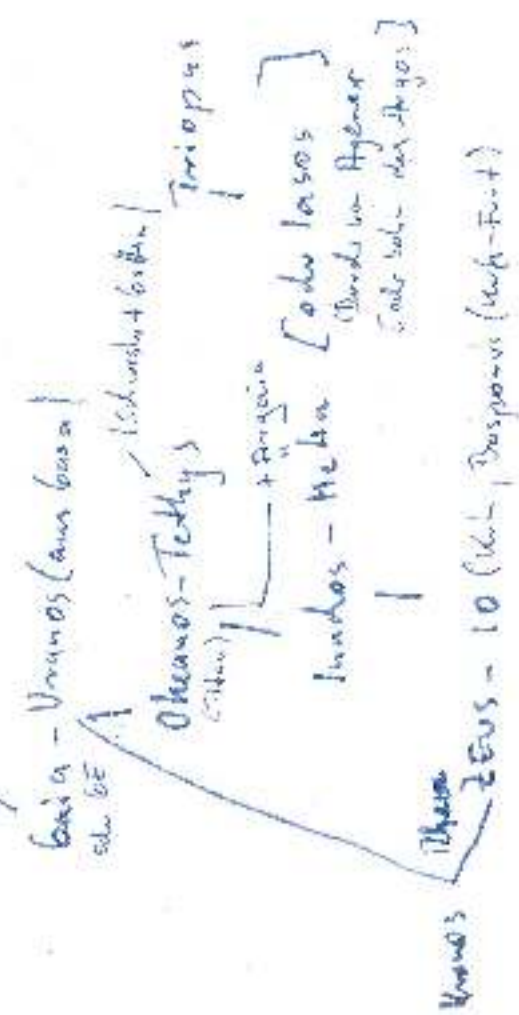 Gaia - Uranos (aus Gaia)
oder GE
Okeanos - Tethys (Schwester + Gattin)
(Titan)
+ Argeia
Triopas
Inachos - Melia [oder Iasos]
(Bruder von Agenor
oder Sohn des Argos]
Kronos Rhea
ZEUS - IO (Kuh, Bosporus (Kuh-Furt)